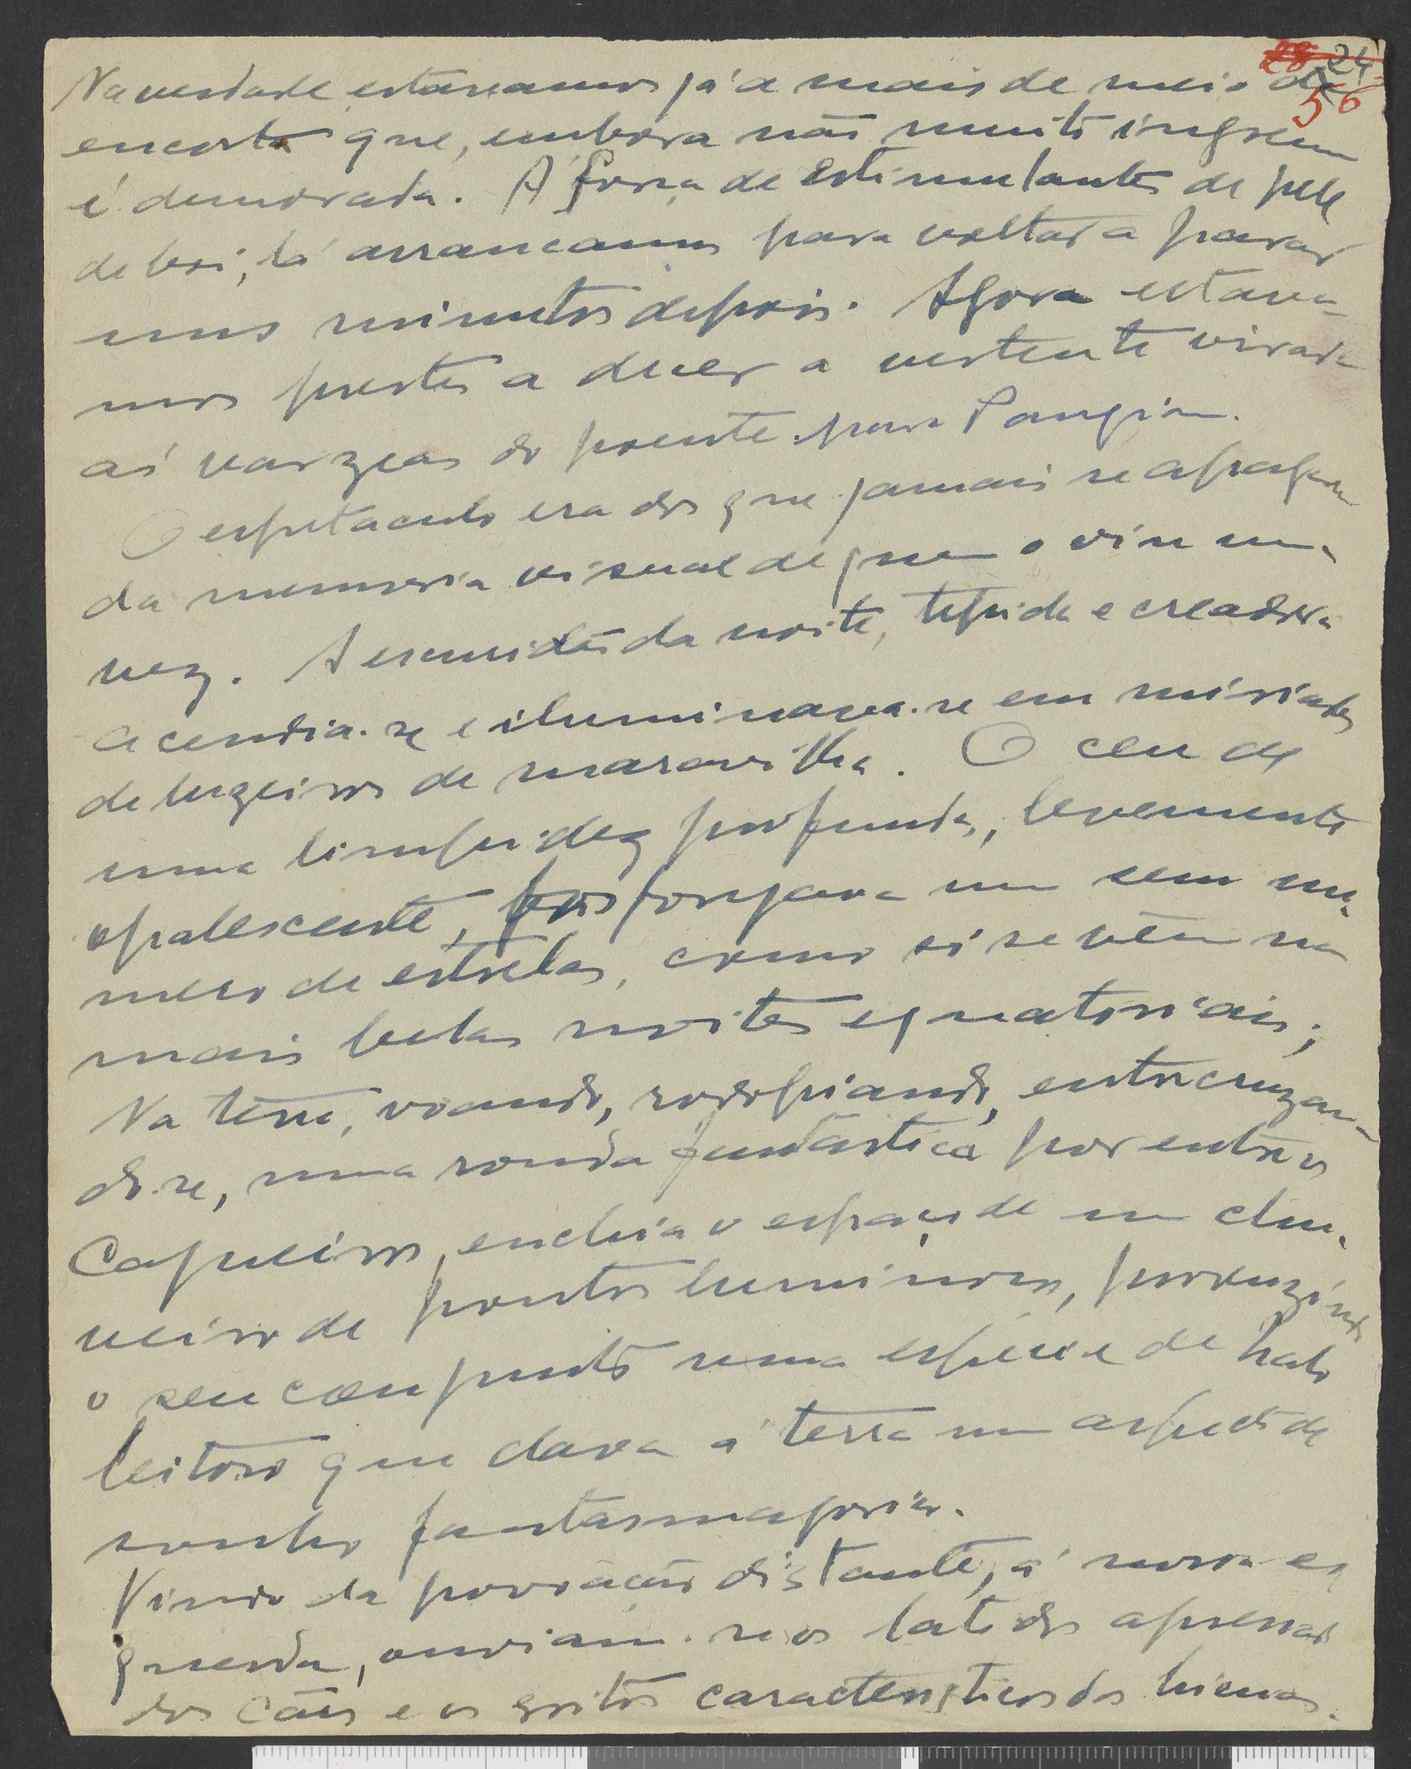 24
56
Na verdade estavamos já a mais de meio da
encosta que, embora não muito ingreme
é demorada. Á força de estimulantes de pele
de boi, lá arrancamos para voltar a parar
uns minutos depois. Agora estava-
mos prestes a descer a vertente virada
ás varzeas do poente para Pangim.
O espetaculo era dos que jamais se apagam
da memoria visual de quem o viu uma
vez. A escuridão da noite, tepida e creadora
acendia-se e iluminava-se em miriades
de luzeiros de maravilha. O ceu de
uma limpidez profunda, levemente
opalescente, fosforejava um sem nu-
mero de estrelas, como si se vêm nas
mais belas noites equatoriais;
Na terra, voando, rodopiando, entrecruzan-
do-se, uma ronda fantástica por entre os
Capueiros, enchia o espaço de um chu-
veiro de pontos luminosos, produzindo
o seu conjunto uma especie de halo
leitoso que dava á terra um aspecto de
sonho fantasmagorico.
Vindo da povoação distante, á nossa es
querda, ouviam-se os latidos apressados
dos cães e os gritos caracteristicos das hienas.